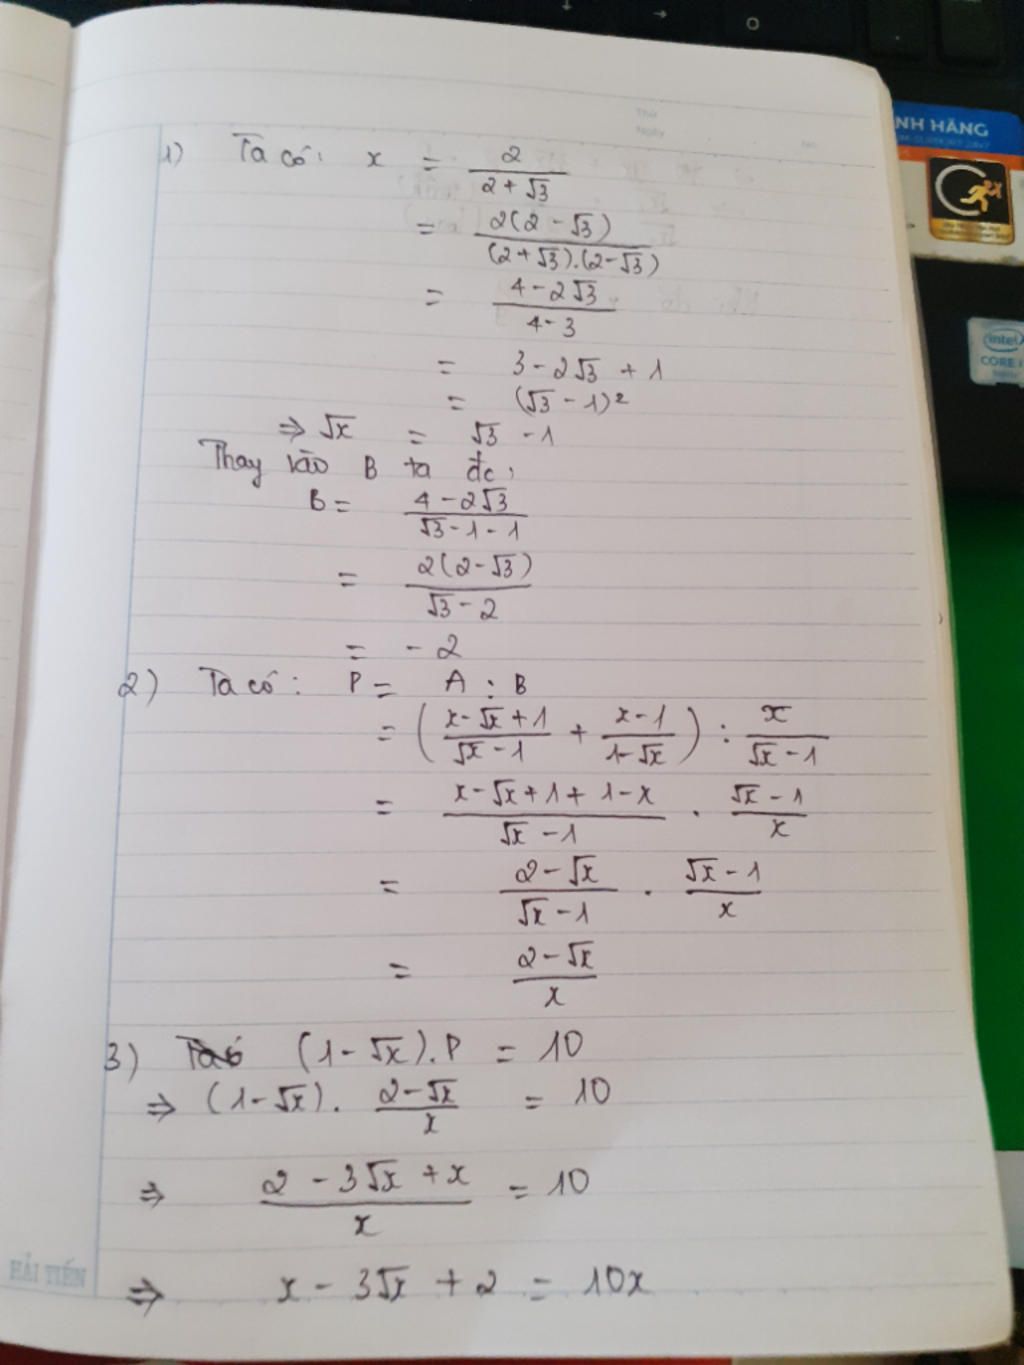 Thứ
Ngày
No.
1) Ta có: x = 2/(2 + √3)
= 2(2 - √3)/((2 + √3).(2 - √3))
= (4 - 2√3)/(4 - 3)
= 3 - 2√3 + 1
= (√3 - 1)²
⇒ √x = √3 - 1
Thay vào B ta đc:
B = (4 - 2√3)/(√3 - 1 - 1)
= 2(2 - √3)/(√3 - 2)
= - 2
2) Ta có: P = A : B
= ((x - √x + 1)/(√x - 1) + (x - 1)/(1 - √x)) : x/(√x - 1)
= (x - √x + 1 + 1 - x)/(√x - 1) . (√x - 1)/x
= (2 - √x)/(√x - 1) . (√x - 1)/x
= (2 - √x)/x
3) (1 - √x).P = 10
⇒ (1 - √x). (2 - √x)/x = 10
⇒ (2 - 3√x + x)/x = 10
⇒ x - 3√x + 2 = 10x
HẢI TIẾN
NH HÃNG
intel
CORE i